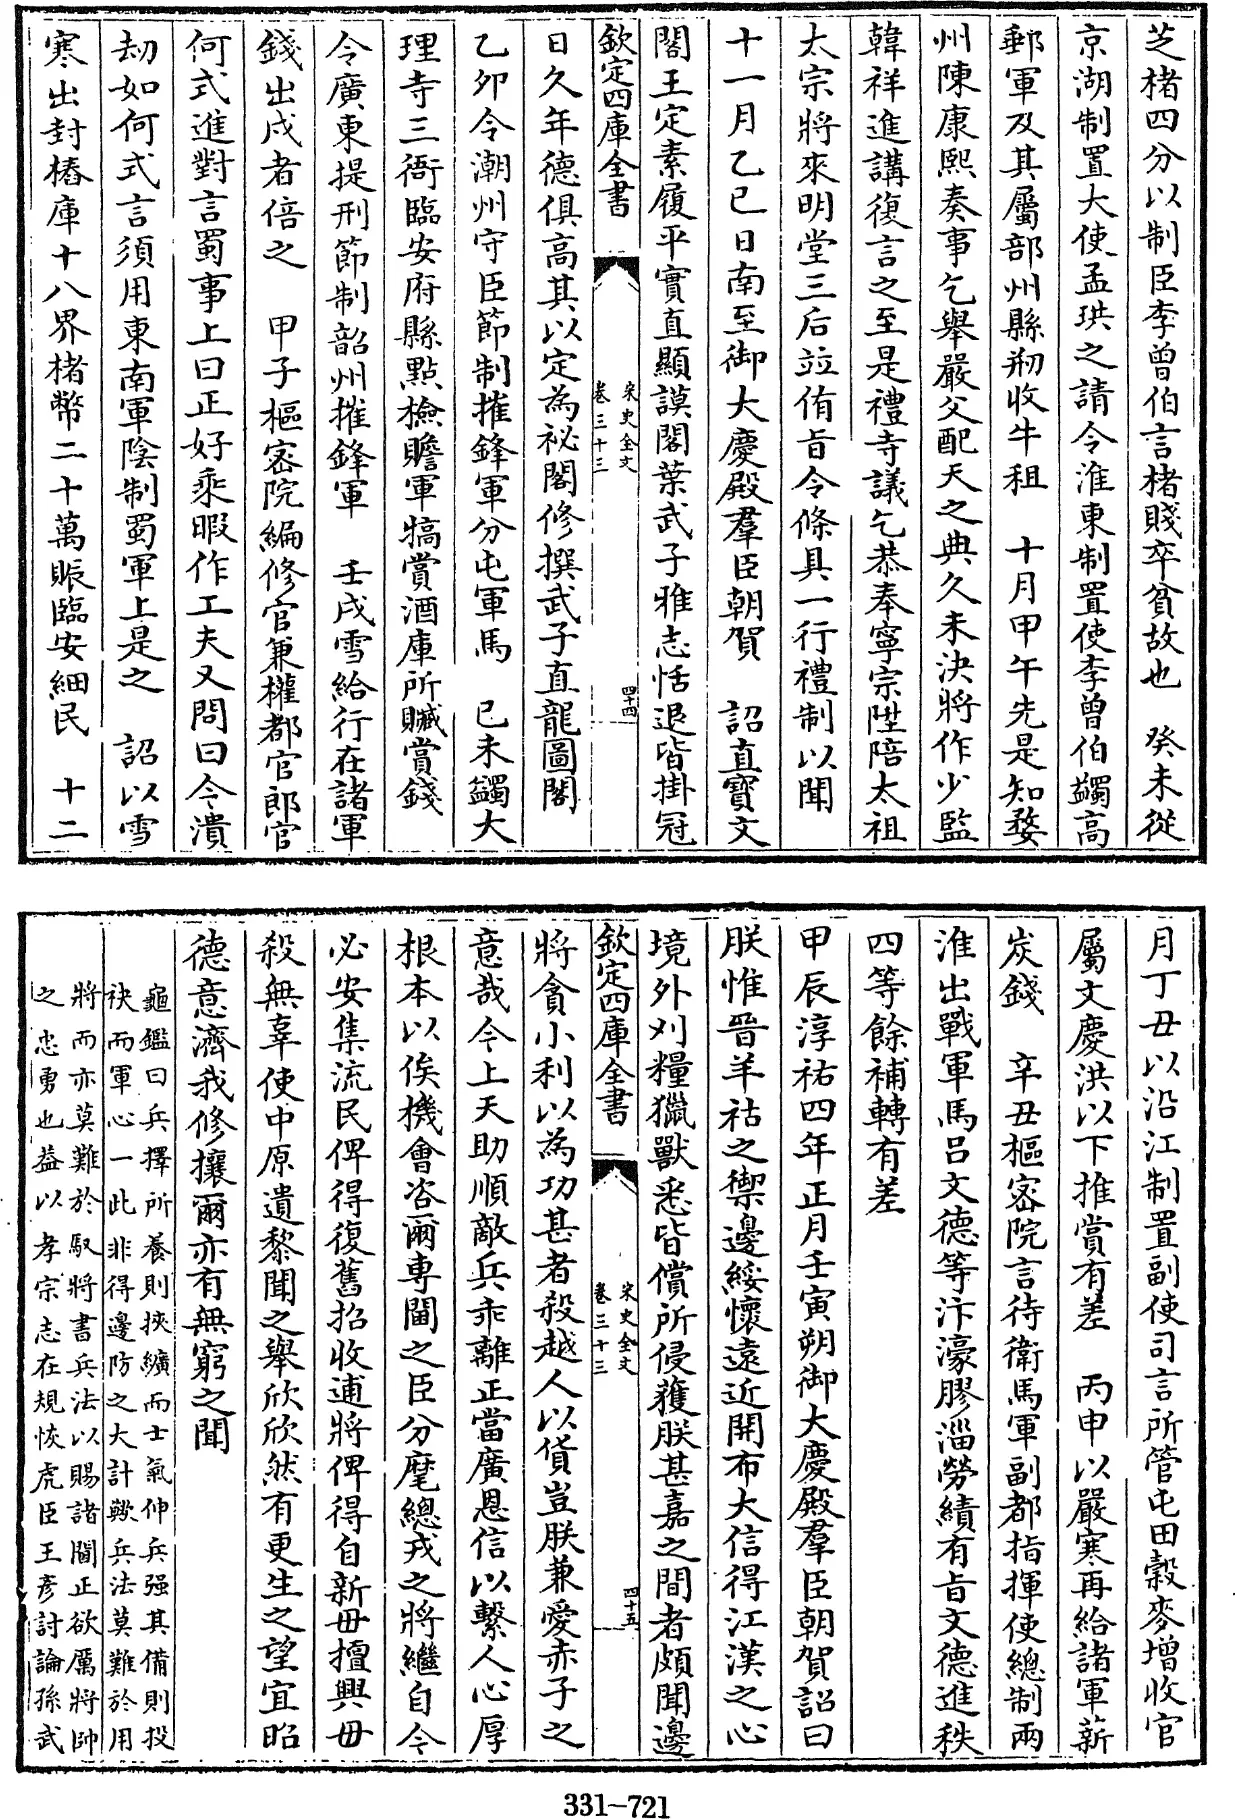 芝楮四分以制臣李曾伯言楮賤卒貧故也　癸未從
京湖制置大使孟珙之請令淮東制置使李曾伯蠲高
郵軍及其屬部州縣剏收牛租　十月甲午先是知婺
州陳康熙奏事乞舉嚴父配天之典久未決將作少監
韓祥進講復言之至是禮寺議乞恭奉寧宗陞陪太祖
太宗將來明堂三后竝侑旨令條具一行禮制以聞
十一月乙巳日南至御大慶殿羣臣朝賀　詔直寶文
閣王定素履平實直顯謨閣葉武子雅志恬退皆掛冠
欽定四庫全書
宋史全文
卷三十三
四十四
日久年德俱高其以定為祕閣修撰武子直龍圖閣
乙卯令潮州守臣節制摧鋒軍分屯軍馬　己未蠲大
理寺三衙臨安府縣點檢贍軍犒賞酒庫所贓賞錢
令廣東提刑節制韶州摧鋒軍　壬戌雪給行在諸軍
錢出戍者倍之　甲子樞密院編修官兼權都官郎官
何式進對言蜀事上曰正好乘暇作工夫又問曰今潰
劫如何式言須用東南軍陰制蜀軍上是之　詔以雪
寒出封樁庫十八界楮幣二十萬賑臨安細民　十二
月丁丑以沿江制置副使司言所管屯田穀麥增收官
屬文慶洪以下推賞有差　丙申以嚴寒再給諸軍薪
炭錢　辛丑樞密院言待衛馬軍副都指揮使總制兩
淮出戰軍馬呂文德等汴濠膠淄勞績有旨文德進秩
四等餘補轉有差
甲辰淳祐四年正月壬寅朔御大慶殿羣臣朝賀詔曰
朕惟晉羊祜之禦邊綏懷遠近開布大信得江漢之心
境外刈糧獵獸悉皆償所侵獲朕甚嘉之間者頗聞邊
欽定四庫全書
宋史全文
卷三十三
四十五
將貪小利以為功甚者殺越人以貨豈朕兼愛赤子之
意哉今上天助順敵兵乖離正當廣恩信以繫人心厚
根本以俟機會咨爾專閫之臣分麾總戎之將繼自今
必安集流民俾得復舊招收逋將俾得自新毋擅興毋
殺無辜使中原遺黎聞之舉欣欣然有更生之望宜昭
德意濟我修攘爾亦有無窮之聞
龜鑑曰兵擇所養則挾纊而士氣伸兵强其備則投
袂而軍心一此非得邊防之大計歟兵法莫難於用
將而亦莫難於馭將書兵法以賜諸閫正欲厲將帥
之忠勇也益以孝宗志在規恢虎臣王彥討論孫武
331—721